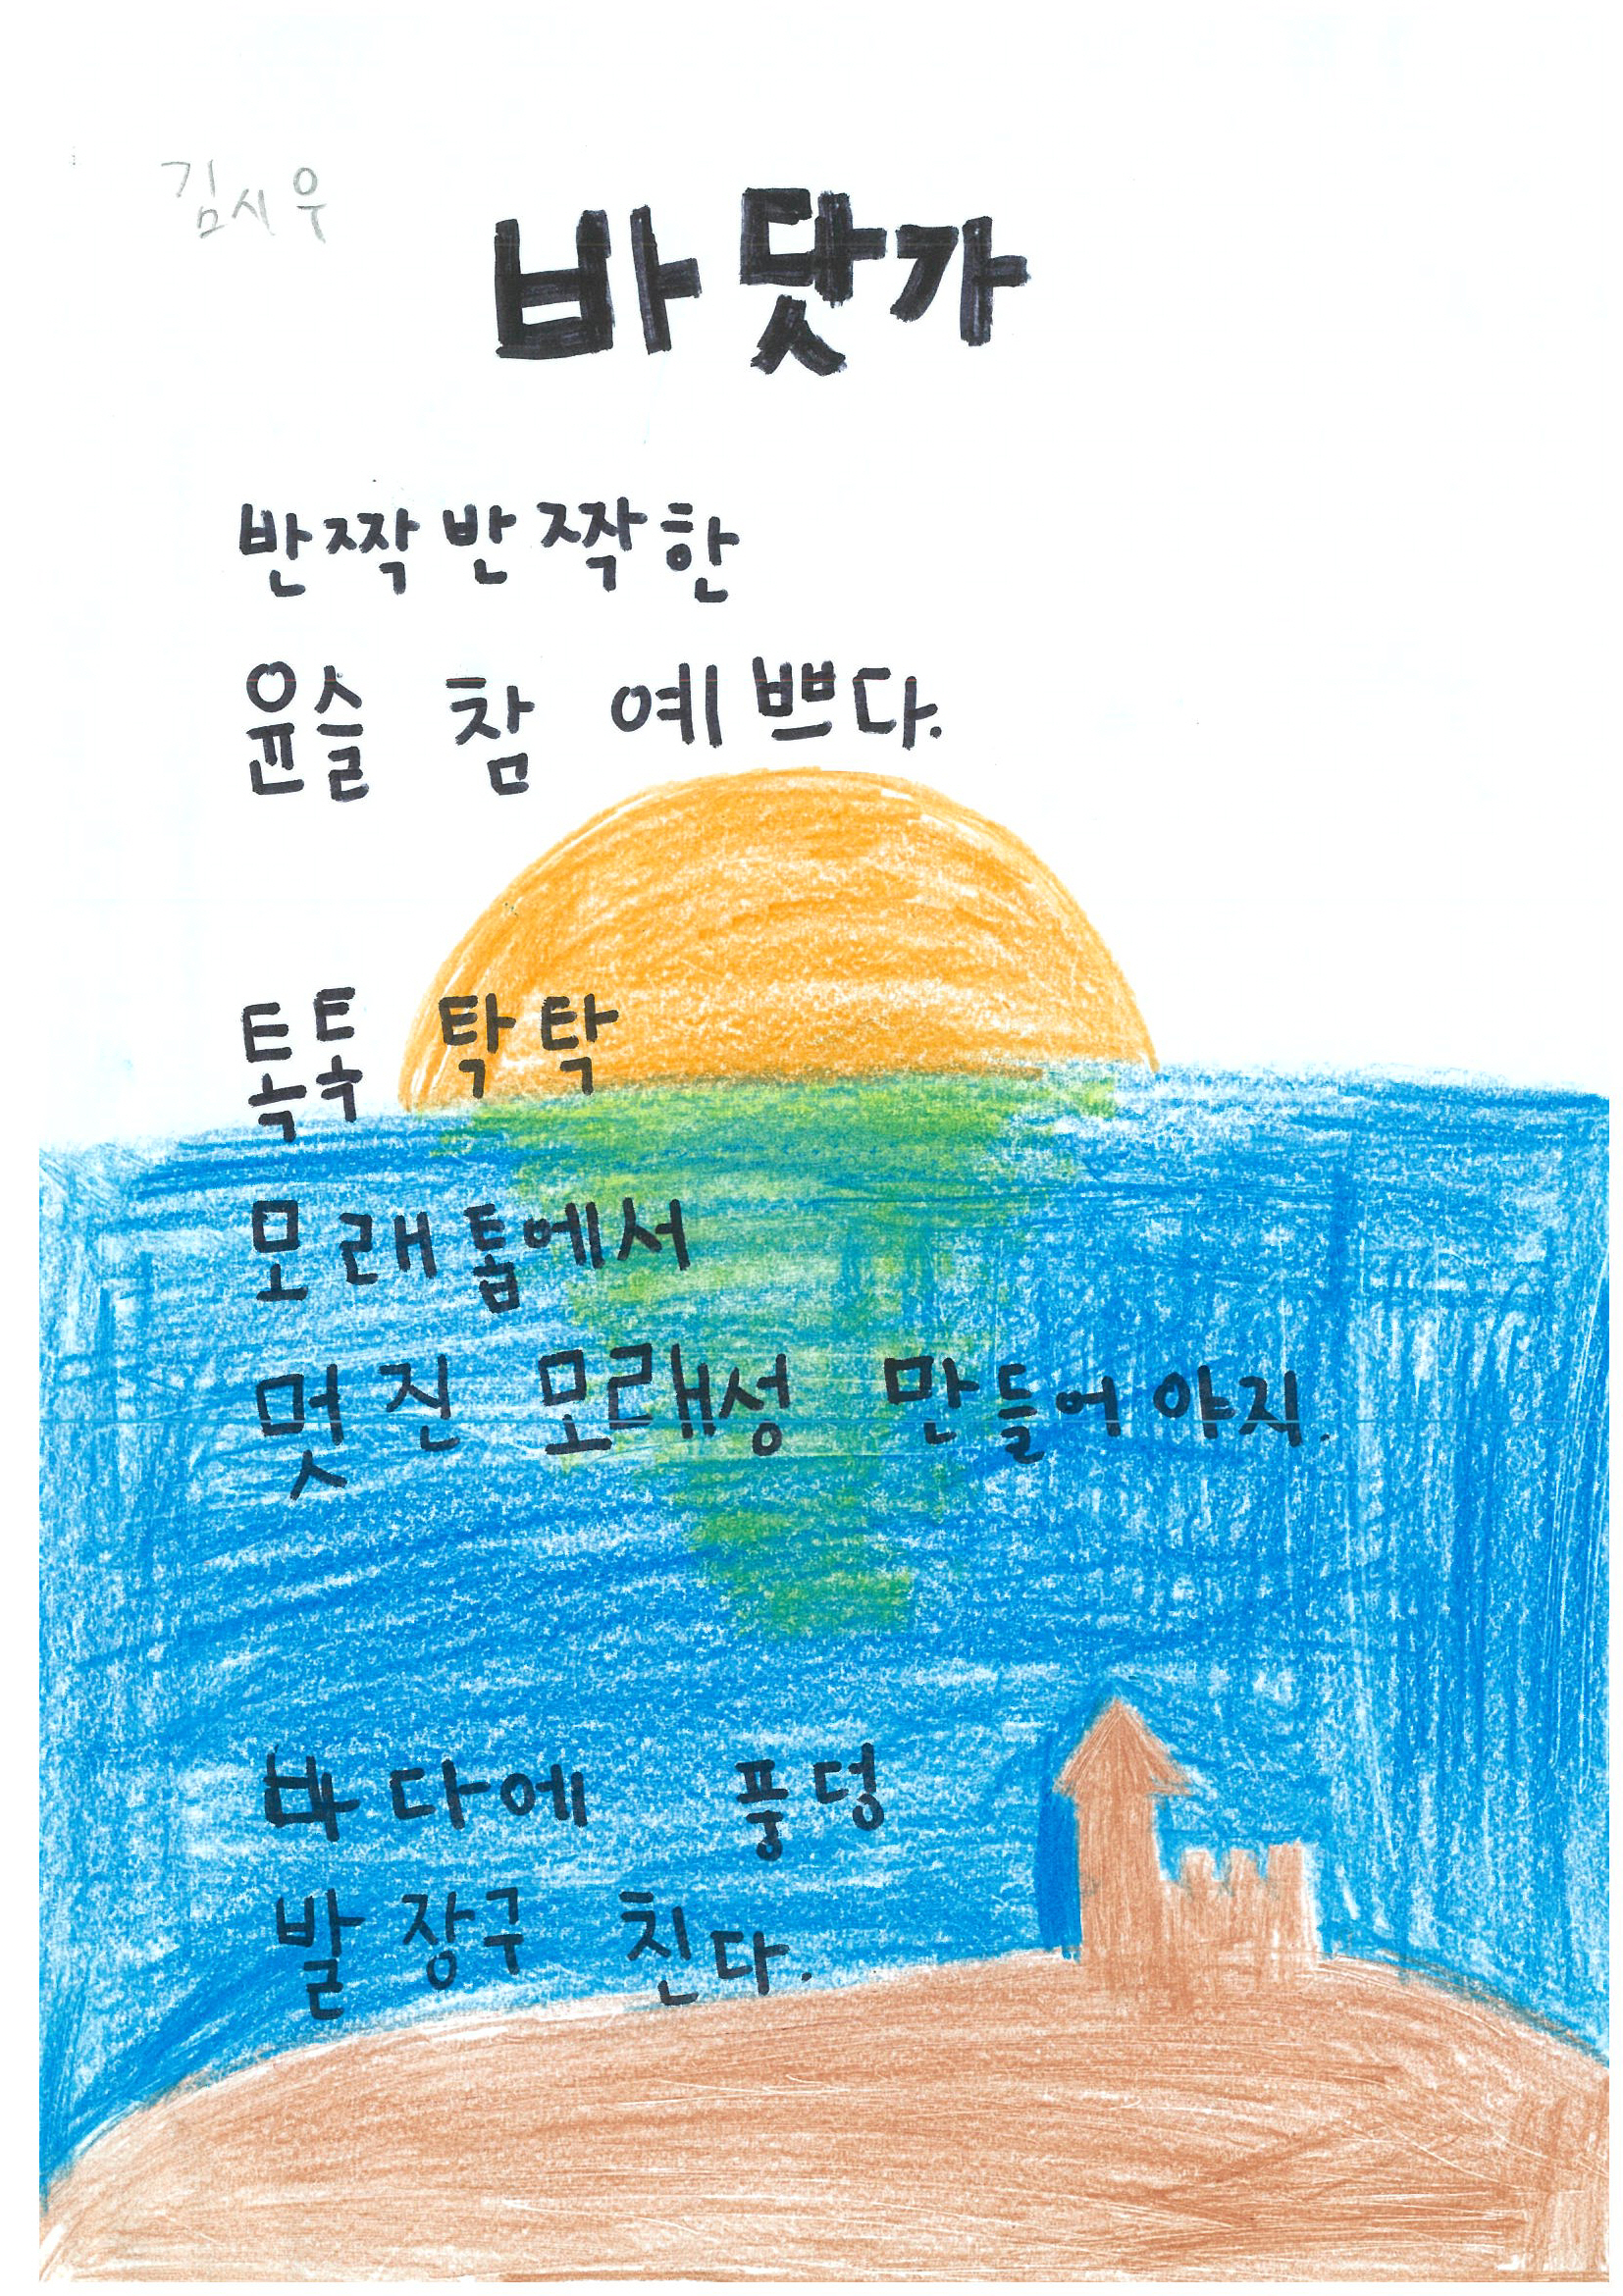 김시우
바닷가
반짝반짝한
윤슬 참 예쁘다.
톡톡 탁탁
모래톱에서
멋진 모래성 만들어야지.
바다에 풍덩
발장구 친다.